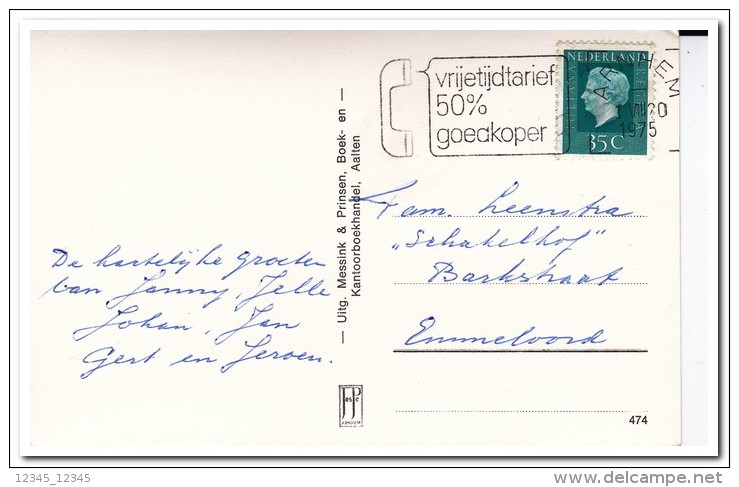 vrijetijdtarief
50%
goedkoper
NEDERLAND
35C
ARNHEM
1975
Fam. Leenstra
„Schakelhof"
Barkstraat
Emmeloord
De hartelijke groeten
van Janny, Jelle
Johan, Jan
Gert en Jeroen.
— Uitg. Messink & Prinsen, Boek- en —
Kantoorboekhandel, Aalten
JosPé
ARNHEM
474
12345_12345
delcampe.net